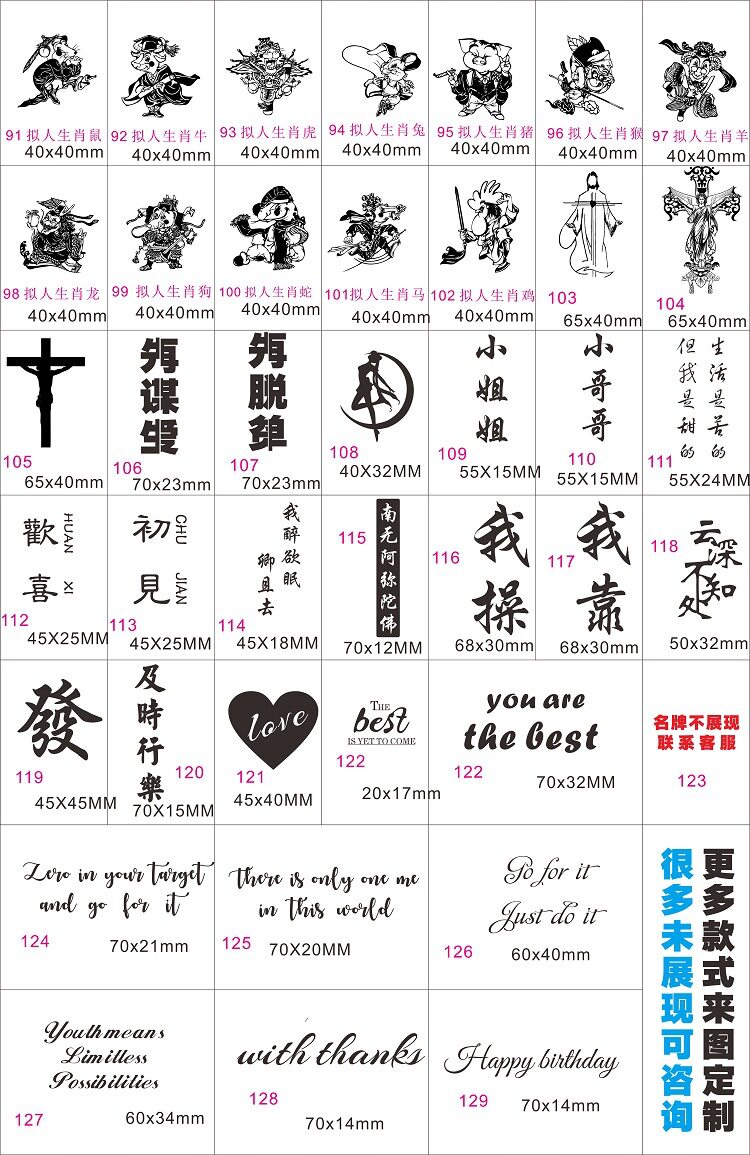 91 拟人生肖鼠
40x40mm
92 拟人生肖牛
40x40mm
93 拟人生肖虎
40x40mm
94 拟人生肖兔
40x40mm
95 拟人生肖猪
40x40mm
96 拟人生肖猴
40x40mm
97 拟人生肖羊
40x40mm
98 拟人生肖龙
40x40mm
99 拟人生肖狗
40x40mm
100 拟人生肖蛇
40x40mm
101 拟人生肖马
40x40mm
102 拟人生肖鸡
40x40mm
103
65x40mm
104
65x40mm
105
65x40mm
106
70x23mm
107
70x23mm
108
40X32MM
小姐姐
109
55X15MM
小哥哥
110
55X15MM
生活是苦的
但我是甜的
111
55X24MM
歡喜
HUAN XI
112
45X25MM
初見
CHU JIAN
113
45X25MM
我醉欲眠
卿且去
114
45X18MM
南无阿弥陀佛
115
70x12MM
我操
116
68x30mm
我靠
117
68x30mm
云深不知处
118
50x32mm
發
119
45X45MM
及時行樂
120
70X15MM
love
121
45x40MM
THE
best
IS YET TO COME
122
20x17mm
you are
the best
122
70x32MM
名牌不展现
联系客服
123
Zero in your target
and go for it
124
70x21mm
there is only one me
in this world
125
70X20MM
Go for it
Just do it
126
60x40mm
更多款式来图定制
很多未展现可咨询
Youth means
Limitless
Possibilities
127
60x34mm
with thanks
128
70x14mm
Happy birthday
129
70x14mm